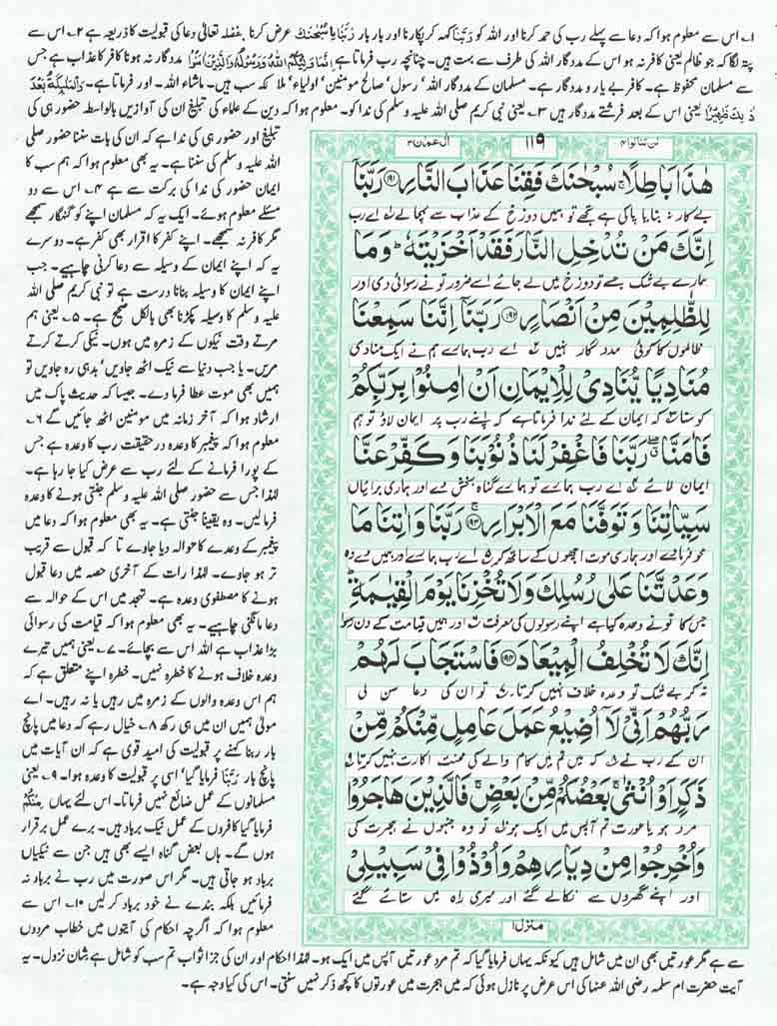 ۱۔ اس سے معلوم ہوا کہ دعا سے پہلے رب کی حمد کرنا اور اللہ کو رَبَّنَا کہہ کر پکارنا اور بار بار رَبَّنَا یا سُبْحٰنَكَ عرض کرنا۔ بفضلہ تعالیٰ دعا کی قبولیت کا ذریعہ ہے ۲۔ اس سے
پتہ لگا کہ جو ظالم یعنی کافر نہ ہو اس کے مددگار اللہ کی طرف سے بہت ہیں۔ چنانچہ رب فرماتا ہے اِنَّمَا وَلِيُّكُمُ اللّٰهُ وَرَسُوْلُهٗ وَالَّذِيْنَ اٰمَنُوْا مددگار نہ ہونا کافر کا عذاب ہے جس
سے مسلمان محفوظ ہے۔ کافر بے یار و مددگار ہے۔ مسلمان کے مددگار اللہ' رسول' صالح مومنین' اولیاء' ملائکہ سب ہیں۔ ماشاء اللہ۔ اور فرماتا ہے۔ وَالْمَلٰٓئِكَةُ بَعْدَ
ذٰلِكَ ظَهِيْرٌ یعنی اس کے بعد فرشتے مددگار ہیں ۳۔ یعنی نبی کریم صلی اللہ علیہ وسلم کی ندا کو۔ معلوم ہوا کہ دین کے علماء کی تبلیغ ان کی آوازیں بالواسطہ حضور ہی کی
تبلیغ اور حضور ہی کی ندا ہے کہ ان کی بات سننا حضور صلی
اللہ علیہ وسلم کی سننا ہے۔ یہ بھی معلوم ہوا کہ ہم سب کا
ایمان حضور کی ندا کی برکت سے ہے ۴۔ اس سے دو
مسئلے معلوم ہوئے۔ ایک یہ کہ مسلمان اپنے کو گنہگار سمجھے
مگر کافر نہ سمجھے۔ اپنے کفر کا اقرار بھی کفر ہے۔ دوسرے
یہ کہ اپنے ایمان کے وسیلہ سے دعا کرنی چاہیے۔ جب
ایمان کا وسیلہ بنانا درست ہے تو نبی کریم صلی اللہ
علیہ وسلم کا وسیلہ پکڑنا بھی بالکل صحیح ہے۔ ۵۔ یعنی ہم
مرتے وقت نیکوں کے زمرہ میں ہوں۔ نیکی کرتے کرتے
مریں۔ یا جب دنیا سے نیک اٹھ جاویں' بد ہی رہ جاویں تو
ہمیں بھی موت عطا فرما دے۔ جیسا کہ حدیث پاک میں
ارشاد ہوا کہ آخر زمانہ میں مومنین اٹھ جائیں گے ۶۔
معلوم ہوا کہ پیغمبر کا وعدہ در حقیقت رب کا وعدہ ہے جس
کے پورا فرمانے کے لئے رب سے عرض کیا جا رہا ہے۔
لہٰذا جس سے حضور صلی اللہ علیہ وسلم جنتی ہونے کا وعدہ
فرما لیں۔ وہ یقیناً جنتی ہے۔ یہ بھی معلوم ہوا کہ دعا میں
پیغمبر کے وعدے کا حوالہ دیا جاوے تا کہ قبول سے قریب
تر ہو جاوے۔ لہٰذا رات کے آخری حصہ میں دعا قبول
ہونے کا مصطفوی وعدہ ہے۔ تہجد میں اس کے حوالہ سے
دعا مانگنی چاہیے۔ یہ بھی معلوم ہوا کہ قیامت کی رسوائی
بڑا عذاب ہے اللہ اس سے بچائے۔ ۷۔ یعنی ہمیں تیرے
وعدہ خلاف ہونے کا خطرہ نہیں۔ خطرہ اپنے متعلق ہے کہ
ہم اس وعدہ والوں کے زمرہ میں رہیں یا نہ رہیں۔ اے
مولٰی ہمیں ان میں ہی رکھ ۸۔ خیال رہے کہ دعا میں پانچ
بار ربنا کہنے پر قبولیت کی امید قوی ہے کہ ان آیات میں
پانچ بار رَبَّنَا فرمایا گیا' اسی پر قبولیت کا وعدہ ہوا۔ ۹۔ یعنی
مسلمانوں کے عمل ضائع نہیں فرماتا۔ اس لئے یہاں مِنْكُمْ
فرمایا گیا کافروں کے عمل نیک برباد ہیں۔ برے عمل برقرار
ہوں گے۔ ہاں بعض گناہ ایسے بھی ہیں جن سے نیکیاں
برباد ہو جاتی ہیں۔ مگر اس صورت میں رب نے برباد نہ
فرمائیں بلکہ بندے نے خود برباد کر لیں ۱۰۔ اس سے
معلوم ہوا کہ اگرچہ احکام کی آیتوں میں خطاب مردوں
لن تنالوا ۴
۱۱۹
اٰل عمران ۳
هٰذَا بَاطِلًا ۚ سُبْحٰنَكَ فَقِنَا عَذَابَ النَّارِ ۝۱۹۱ رَبَّنَاۤ
بے کار نہ بنایا پاکی ہے تجھے تو ہمیں دوزخ کے عذاب سے بچالے اے رب
اِنَّكَ مَنْ تُدْخِلِ النَّارَ فَقَدْ اَخْزَيْتَهٗ ؕ وَمَا
ہمارے بے شک جسے تو دوزخ میں لے جائے اسے ضرور تو نے رسوائی دی اور
لِلظّٰلِمِيْنَ مِنْ اَنْصَارٍ ۝۱۹۲ رَبَّنَاۤ اِنَّنَا سَمِعْنَا
ظالموں کا کوئی مددگار نہیں ۲ اے رب ہمارے ہم نے ایک منادی
مُنَادِيًا يُّنَادِيْ لِلْاِيْمَانِ اَنْ اٰمِنُوْا بِرَبِّكُمْ
کو سنا ۳ کہ ایمان کے لئے ندا فرماتا ہے کہ اپنے رب پر ایمان لاؤ تو ہم
فَاٰمَنَّا ۖۗ رَبَّنَا فَاغْفِرْ لَنَا ذُنُوْبَنَا وَكَفِّرْ عَنَّا
ایمان لائے ۴ اے رب ہمارے تو ہمارے گناہ بخش دے اور ہماری برائیاں
سَيِّاٰتِنَا وَتَوَفَّنَا مَعَ الْاَبْرَارِ ۝۱۹۳ رَبَّنَا وَاٰتِنَا مَا
محو فرمادے اور ہماری موت اچھوں کے ساتھ کر ۵ اے رب ہمارے اور ہمیں دے وہ
وَعَدْتَّنَا عَلٰى رُسُلِكَ وَلَا تُخْزِنَا يَوْمَ الْقِيٰمَةِ ؕ
جس کا تو نے وعدہ کیا ہے اپنے رسولوں کی معرفت ۶ اور ہمیں قیامت کے دن رسوا
اِنَّكَ لَا تُخْلِفُ الْمِيْعَادَ ۝۱۹۴ فَاسْتَجَابَ لَهُمْ
نہ کر بے شک تو وعدہ خلاف نہیں کرتا ۷ تو ان کی دعا سن لی
رَبُّهُمْ اَنِّيْ لَاۤ اُضِيْعُ عَمَلَ عَامِلٍ مِّنْكُمْ مِّنْ
ان کے رب نے ۸ کہ میں تم میں کام والے کی محنت اکارت نہیں کرتا ۹
ذَكَرٍ اَوْ اُنْثٰى ۚ بَعْضُكُمْ مِّنْ بَعْضٍ ۚ فَالَّذِيْنَ هَاجَرُوْا
مرد ہو یا عورت تم آپس میں ایک ہو ۱۰ تو وہ جنہوں نے ہجرت کی
وَاُخْرِجُوْا مِنْ دِيَارِهِمْ وَاُوْذُوْا فِيْ سَبِيْلِيْ
اور اپنے گھروں سے نکالے گئے اور میری راہ میں ستائے گئے
منزل ۱
سے ہے مگر عورتیں بھی ان میں شامل ہیں کیونکہ یہاں فرمایا گیا کہ تم مرد عورتیں آپس میں ایک ہو۔ لہٰذا احکام اور ان کی جزا ثواب تم سب کو شامل ہے شان نزول۔ یہ
آیت حضرت ام سلمہ رضی اللہ عنہا کی اس عرض پر نازل ہوئی کہ میں ہجرت میں عورتوں کا کچھ ذکر نہیں سنتی۔ اس کی کیا وجہ ہے۔